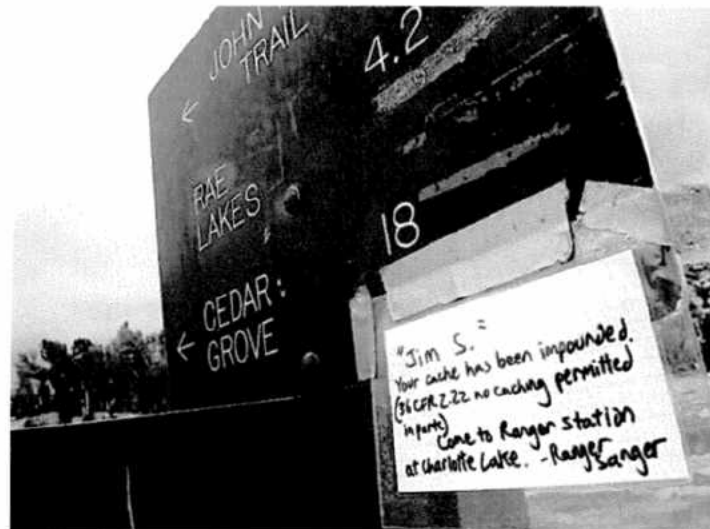 JOHN
TRAIL
4.2
←
RAE
LAKES
18
CEDAR
← GROVE
"Jim S."
Your cache has been impounded.
(36 CFR 2.22 no caching permitted
in parks)
Come to Ranger station
at Charlotte Lake. - Ranger
Sanger